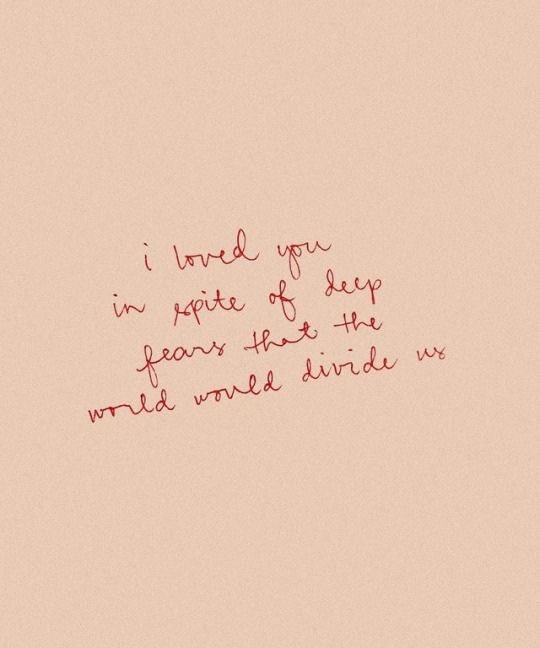 i loved you
in spite of deep
fears that the
world would divide us